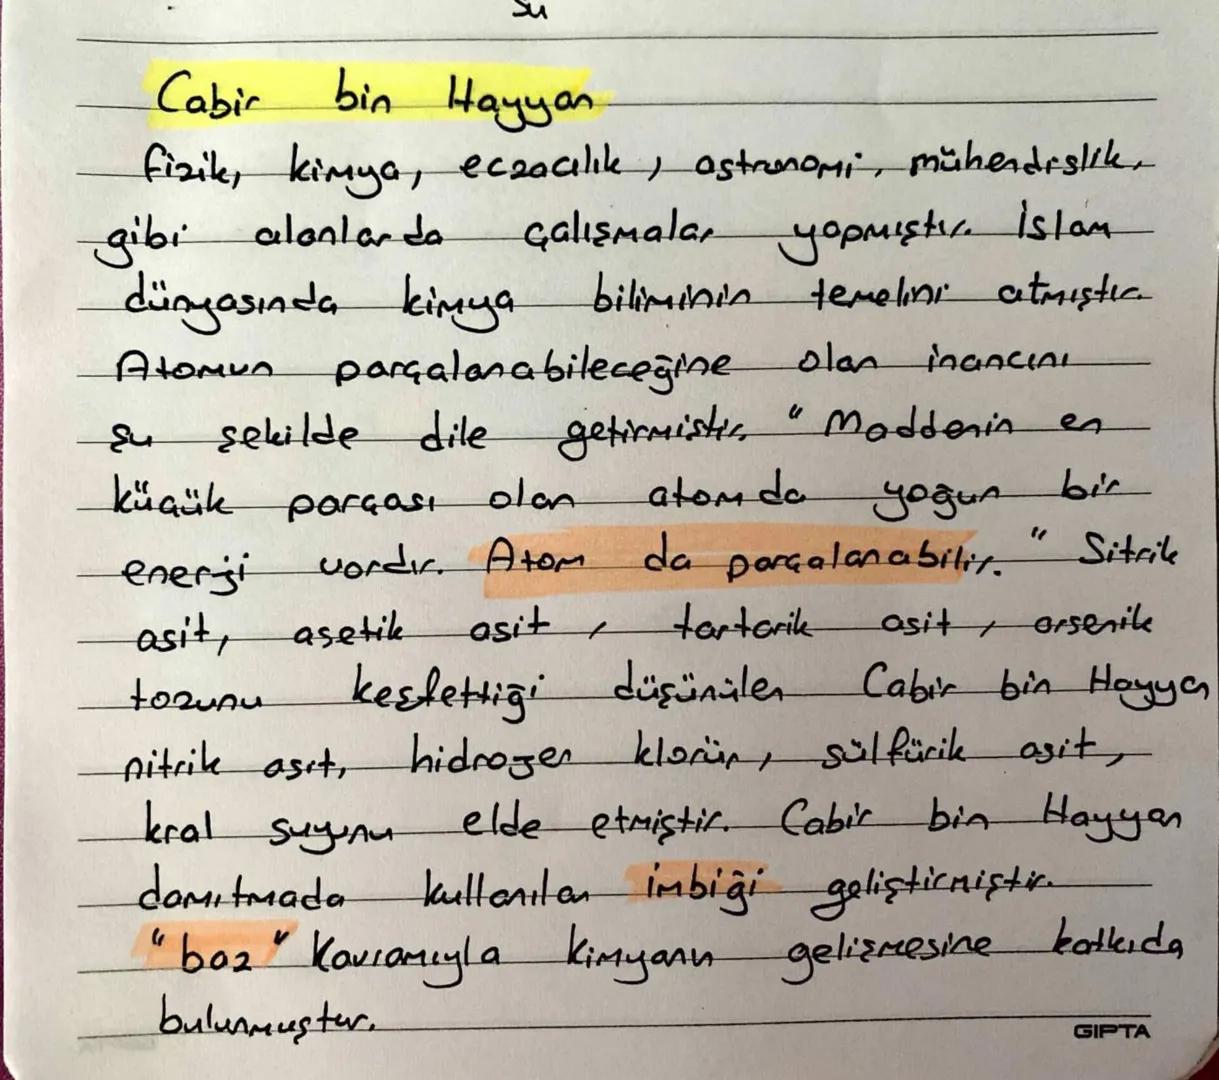 su
Cabir bin Hayyan
fizik, kimya, eczacılık, astronomi, mühendislik,
gibi alanlarda çalışmalar yapmıştır. İslam
dünyasında kimya biliminin temelini atmıştır.
Atomun parçalanabileceğine olan inancını
şu şekilde dile getirmiştir. "Maddenin en
küçük parçası olan atomda yoğun bir
enerji vardır. Atom da parçalanabilir." Sitrik
asit, asetik asit, tartarik asit, arsenik
tozunu keşfettiği düşünülen Cabir bin Hayyan
nitrik asit, hidrojen klorür, sülfürik asit,
kral suyunu elde etmiştir. Cabir bin Hayyan
damıtmada kullanılan imbiği geliştirmiştir.
"baz" kavramıyla kimyanın gelişmesine katkıda
bulunmuştur.
GIPTA